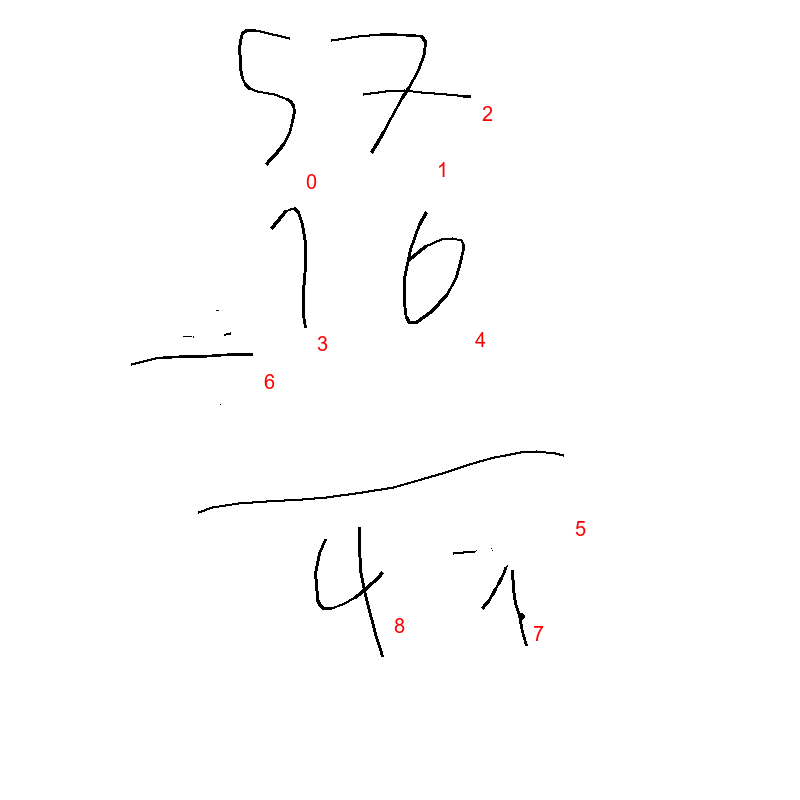 57
2
0
1
16
3
4
-
6
5
41
8
7